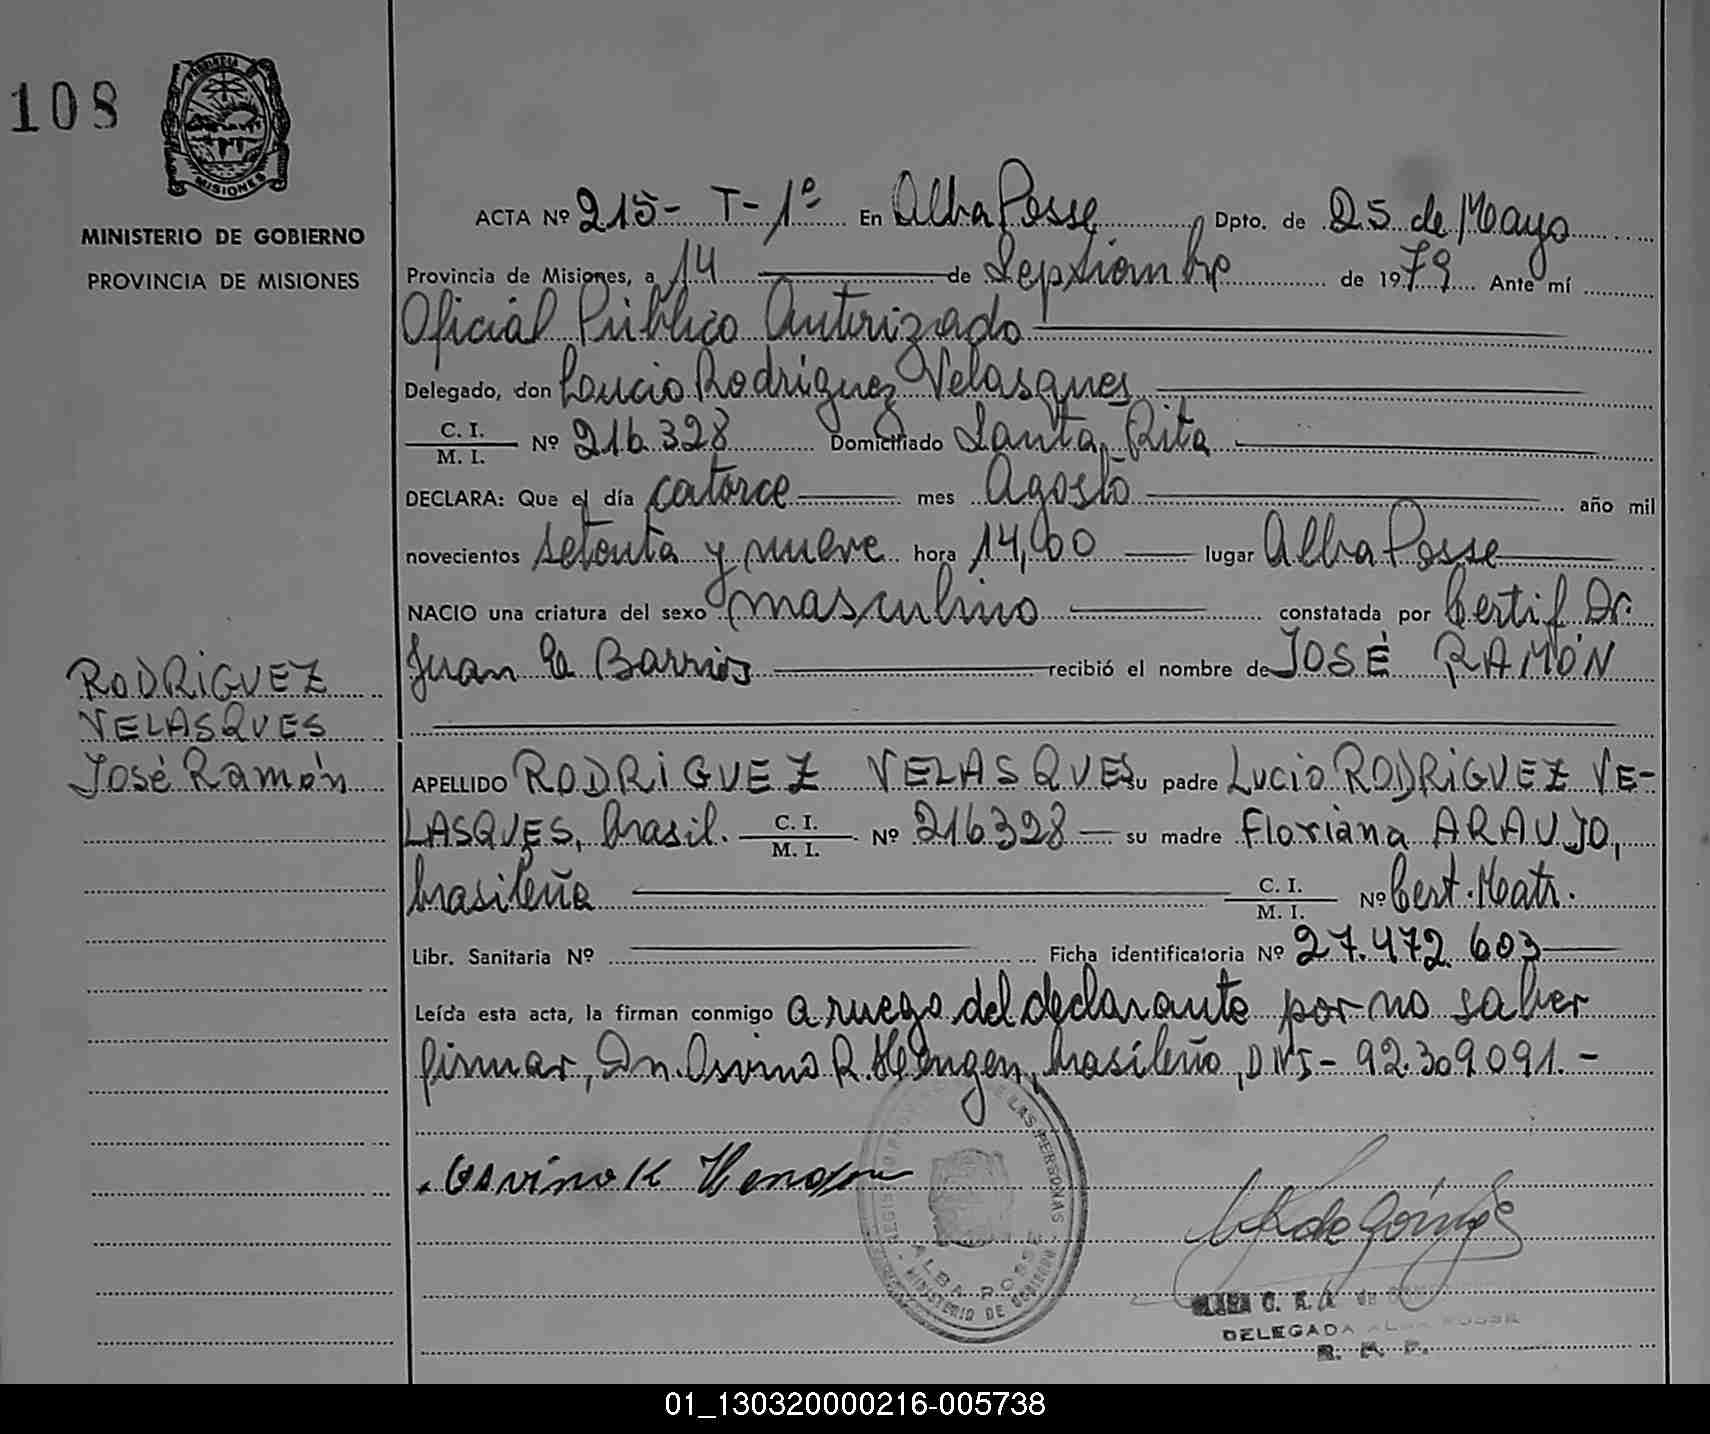 108
PROVINCIA
MISIONES
MINISTERIO DE GOBIERNO
PROVINCIA DE MISIONES
ACTA Nº 215- T-1º En Alba Posse Dpto. de 25 de Mayo
Provincia de Misiones, a 14 de Septiembre de 1979 Ante mí
Oficial Público Autorizado
Delegado, don Loucio Rodriguez Velasques
C. I. / M. I. Nº 216.328 Domiciliado Santa Rita
DECLARA: Que el día catorce mes Agosto año mil
novecientos setenta y nueve hora 14,00 lugar Alba Posse
NACIO una criatura del sexo masculino constatada por Certif. Dr.
Juan C. Barrios recibió el nombre de JOSÉ RAMÓN
RODRIGUEZ
VELASQUES
José Ramón
APELLIDO RODRIGUEZ VELASQUES su padre Lucio RODRIGUEZ VE-
LASQUES, brasil. C. I. / M. I. Nº 216328 su madre Floriana ARAUJO,
brasileña C. I. / M. I. Nº Cert. Matr.
Libr. Sanitaria Nº Ficha identificatoria Nº 27.472.603
Leída esta acta, la firman conmigo a ruego del declarante por no saber
firmar, Dn. Osvino R. Hengen, brasileño, DNI- 92.309.091.-
Osvino R Hengen
REGISTRO DE LAS PERSONAS
ALBA POSSE
MINISTERIO DE GOBIERNO
de Gómez
DELEGADA ALBA POSSE
R. P. P.
01_130320000216-005738